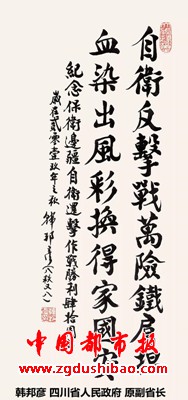 自衛反擊戰萬險鐵肩擔
血染出風彩換得家國安
紀念保衛邊疆自衛還擊作戰勝利肆拾周年
歲在貳零壹玖年之秋 韓邦彥(八秩又八)
中國都市报
www.zgdushibao.com
韩邦彦 四川省人民政府 原副省长